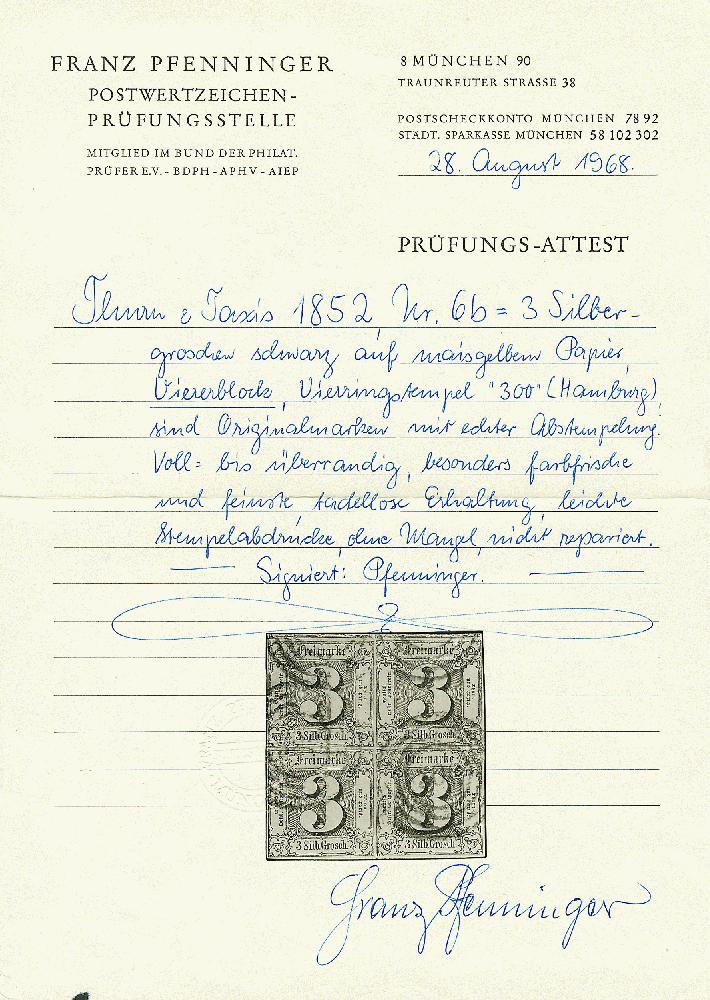 FRANZ PFENNINGER
POSTWERTZEICHEN-
PRÜFUNGSSTELLE
MITGLIED IM BUND DER PHILAT.
PRÜFER E.V. - BDPH - APHV - AIEP
8 MÜNCHEN 90
TRAUNREUTER STRASSE 38
POSTSCHECKKONTO MÜNCHEN 78 92
STÄDT. SPARKASSE MÜNCHEN 58 102 302
28. August 1968.
PRÜFUNGS-ATTEST
Thurn & Taxis 1852, Nr. 6b = 3 Silber-
groschen schwarz auf maisgelbem Papier,
Viererblock, Vierringstempel "300" (Hamburg),
sind Originalmarken mit echter Abstempelung.
Voll= bis überrandig, besonders farbfrische
und feinste, tadellose Erhaltung, leichte
Stempelabdrücke, ohne Mangel, nicht repariert.
Signiert: Pfenninger.
Freimarke Freimarke
3 3
3 Silb. Grosch. 3 Silb. Grosch.
Freimarke Freimarke
3 3
3 Silb. Grosch. 3 Silb. Grosch.
Franz Pfenninger